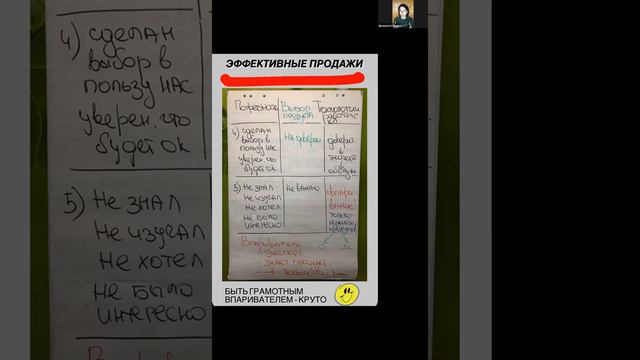 4) сделан
выбор в
пользу НАС
уверен, что
будет ок
5) Не знал
Не изучал
Не хотел
Не было
интересно
ЭФФЕКТИВНЫЕ ПРОДАЖИ
Потребность
Выбор
продукта
Технологии
4) сделан
выбор в
пользу НАС
уверен, что
будет ок
на доверии
5) Не знал
Не изучал
Не хотел
Не было
интересно
Не важно
только
Впариватель
- эксперт
- знает продукт
БЫТЬ ГРАМОТНЫМ
ВПАРИВАТЕЛЕМ - КРУТО